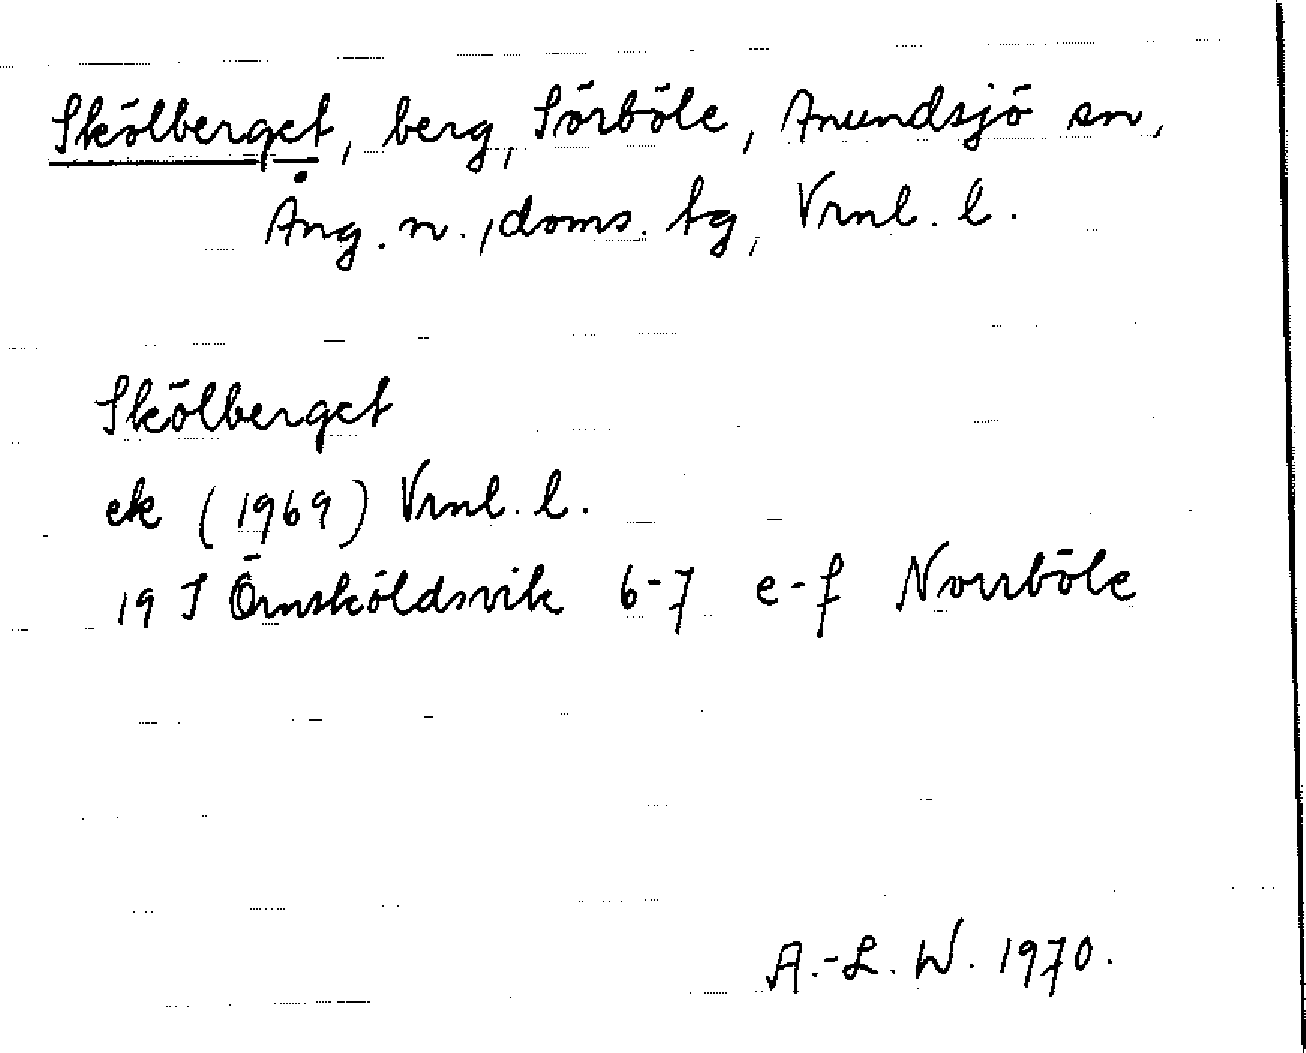 Skölberget, berg, Sörböle, Anundsjö sn,
Ång. n., doms. tg, Vrml. l.
Skölberget
ek (1969) Vrml. l.
19 J Örnsköldsvik 6-7 e-f Norrböle
A.-L. W. 1970.